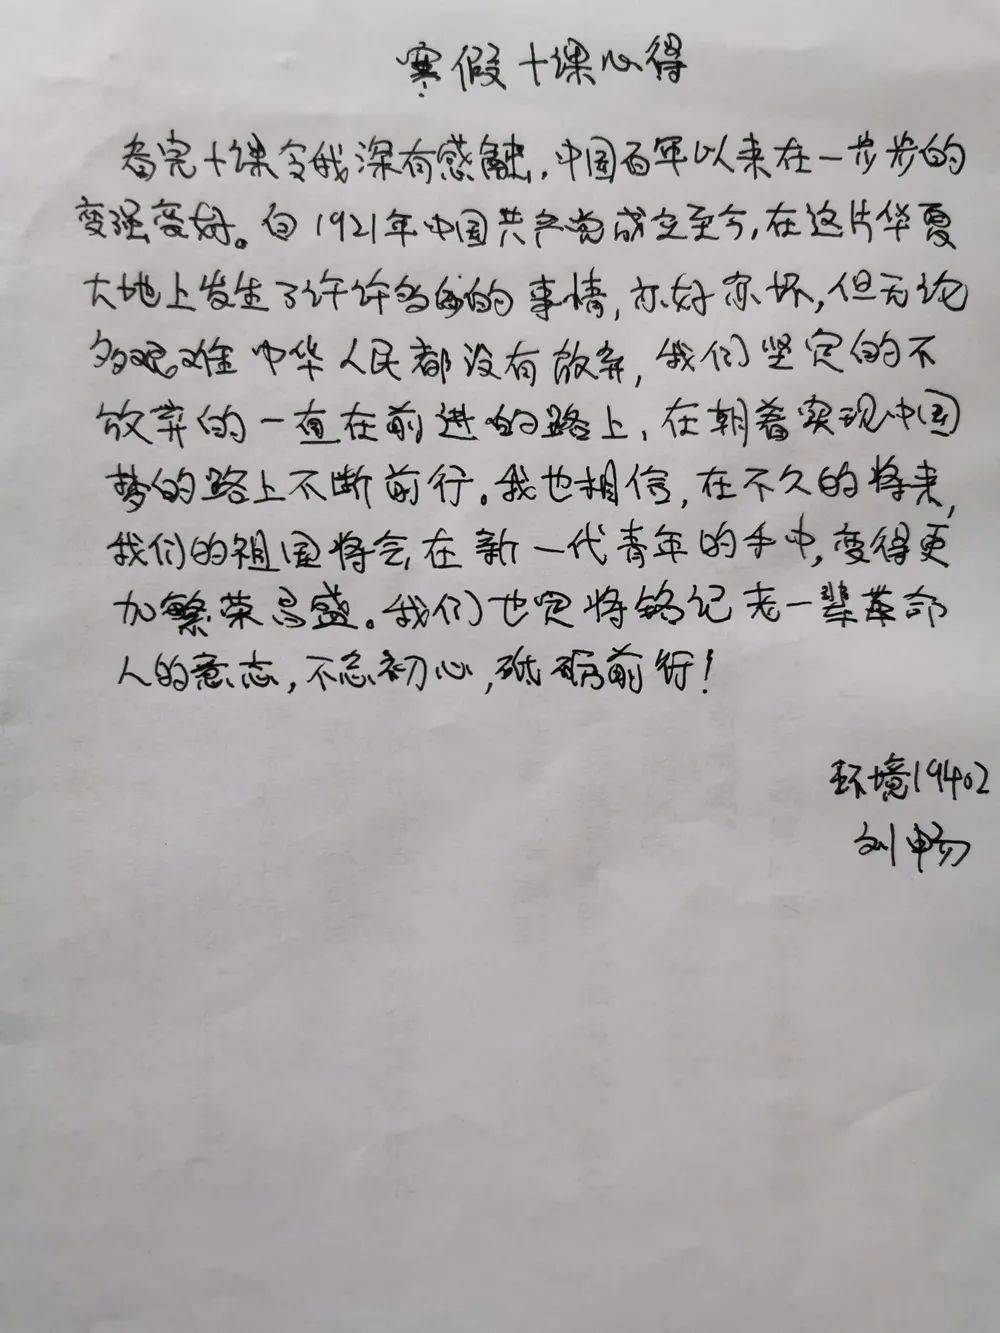 寒假十课心得
看完十课令我深有感触，中国百年以来在一步步的
变强变好。自1921年中国共产党成立至今，在这片华夏
大地上发生了许许多多的事情，亦好亦坏，但无论
多艰难中华人民都没有放弃，我们坚定的不
放弃的一直在前进的路上，在朝着实现中国
梦的路上不断前行。我也相信，在不久的将来，
我们的祖国将会在新一代青年的手中，变得更
加繁荣昌盛。我们也定将铭记老一辈革命
人的意志，不忘初心，砥砺前行！
环境19402
刘畅